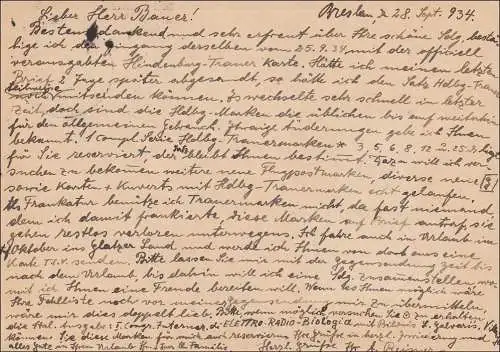 Breslau, d 28. Sept. 934.
Lieber Herr Bauer!
Bestens dankend und sehr erfreut über Ihre schöne Sdg. bestä-
tige ich den Eingang derselben vom 25.9.34, mit der officiell
verausgabten Hindenburg-Trauer Karte. Hätte ich meinen letzten
Brief 2 Tage später abgesandt, so hätt ich den Satz Hdbg-Trauer
mitsenden können. Es wechselte sehr schnell in letzter
Zeit, doch sind die Hdbg-Marken die üblichen bis auf weiteres
für den allgemeinen Gebrauch. Etwaige Änderungen gebe ich Ihnen
bekannt. 1 Compl. Serie Hdbg-Trauermarken * 3, 5, 6, 8, 12 u. 25 Pf
für Sie reserviert, der bleibt Ihnen bestimmt. Dazu will ich ver-
suchen zu bekommen weitere neue Flugpostmarken, diverse neue
sowie Karten u. Kuverts mit Hdbg-Trauermarken echt gelaufen.
Als Frankatur benütze ich Trauermarken nicht, da fast niemand
dem ich damit frankierte, diese Marken auf Brief antraf, sie
gehen restlos verloren unterwegs. Ich fahre auch in Urlaub im
Oktober ins Glatzer Land und werde ich Ihnen von dort aus eine
Karte senden. Bitte lassen Sie mir mit der Gegensendung Zeit bis
nach dem Urlaub, bis dahin will ich eine Sdg. zusammenstellen, wo-
mit ich Ihnen eine Freude bereiten will. Wenn es Ihnen möglich wäre
Ihre Fehlliste noch vor meiner Gegensendung mir zu übermitteln
wäre mir dies doppelt lieb. Bitte, wenn möglich versuchen Sie zu erhalten
die Ital. Ausgabe: I. Congr. Internaz. di ELETTRO-RADIO-Biologia mit Bildnis L. Galvanis,
können Sie diese Marken für mich auch reservieren
alles Gute in Ihrem Urlaub Ihr u. Familie
Herzl. Grüsse Ihr